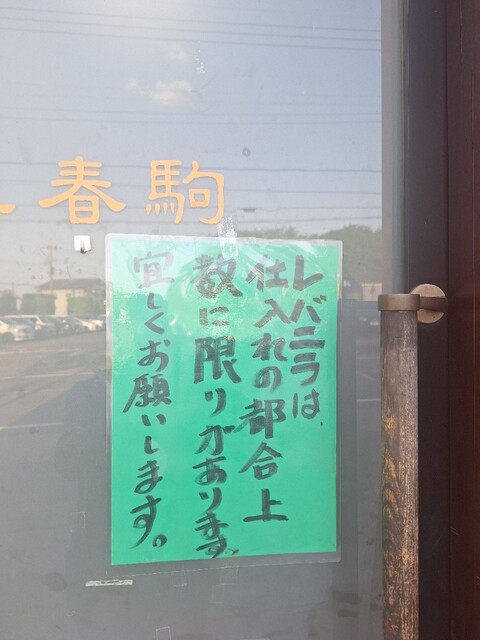 春駒
レバニラは、
仕入れの都合上
数に限りがあります。
宜しくお願いします。